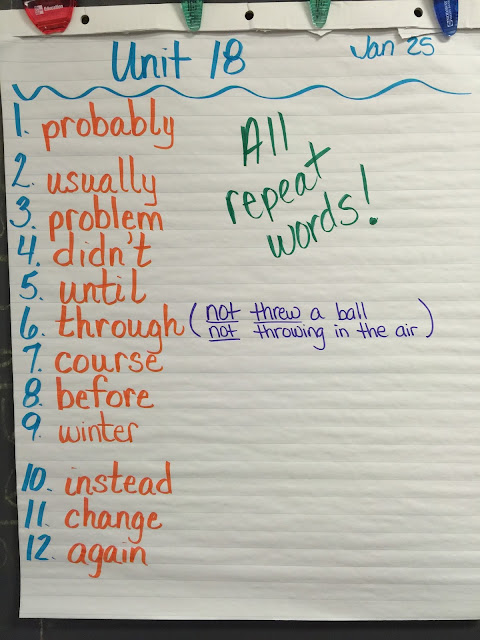 Unit 18
Jan 25
1. probably
2. usually
3. problem
4. didn't
5. until
6. through (not threw a ball
not throwing in the air)
7. course
8. before
9. winter
10. instead
11. change
12. again
All
repeat
words!
Education